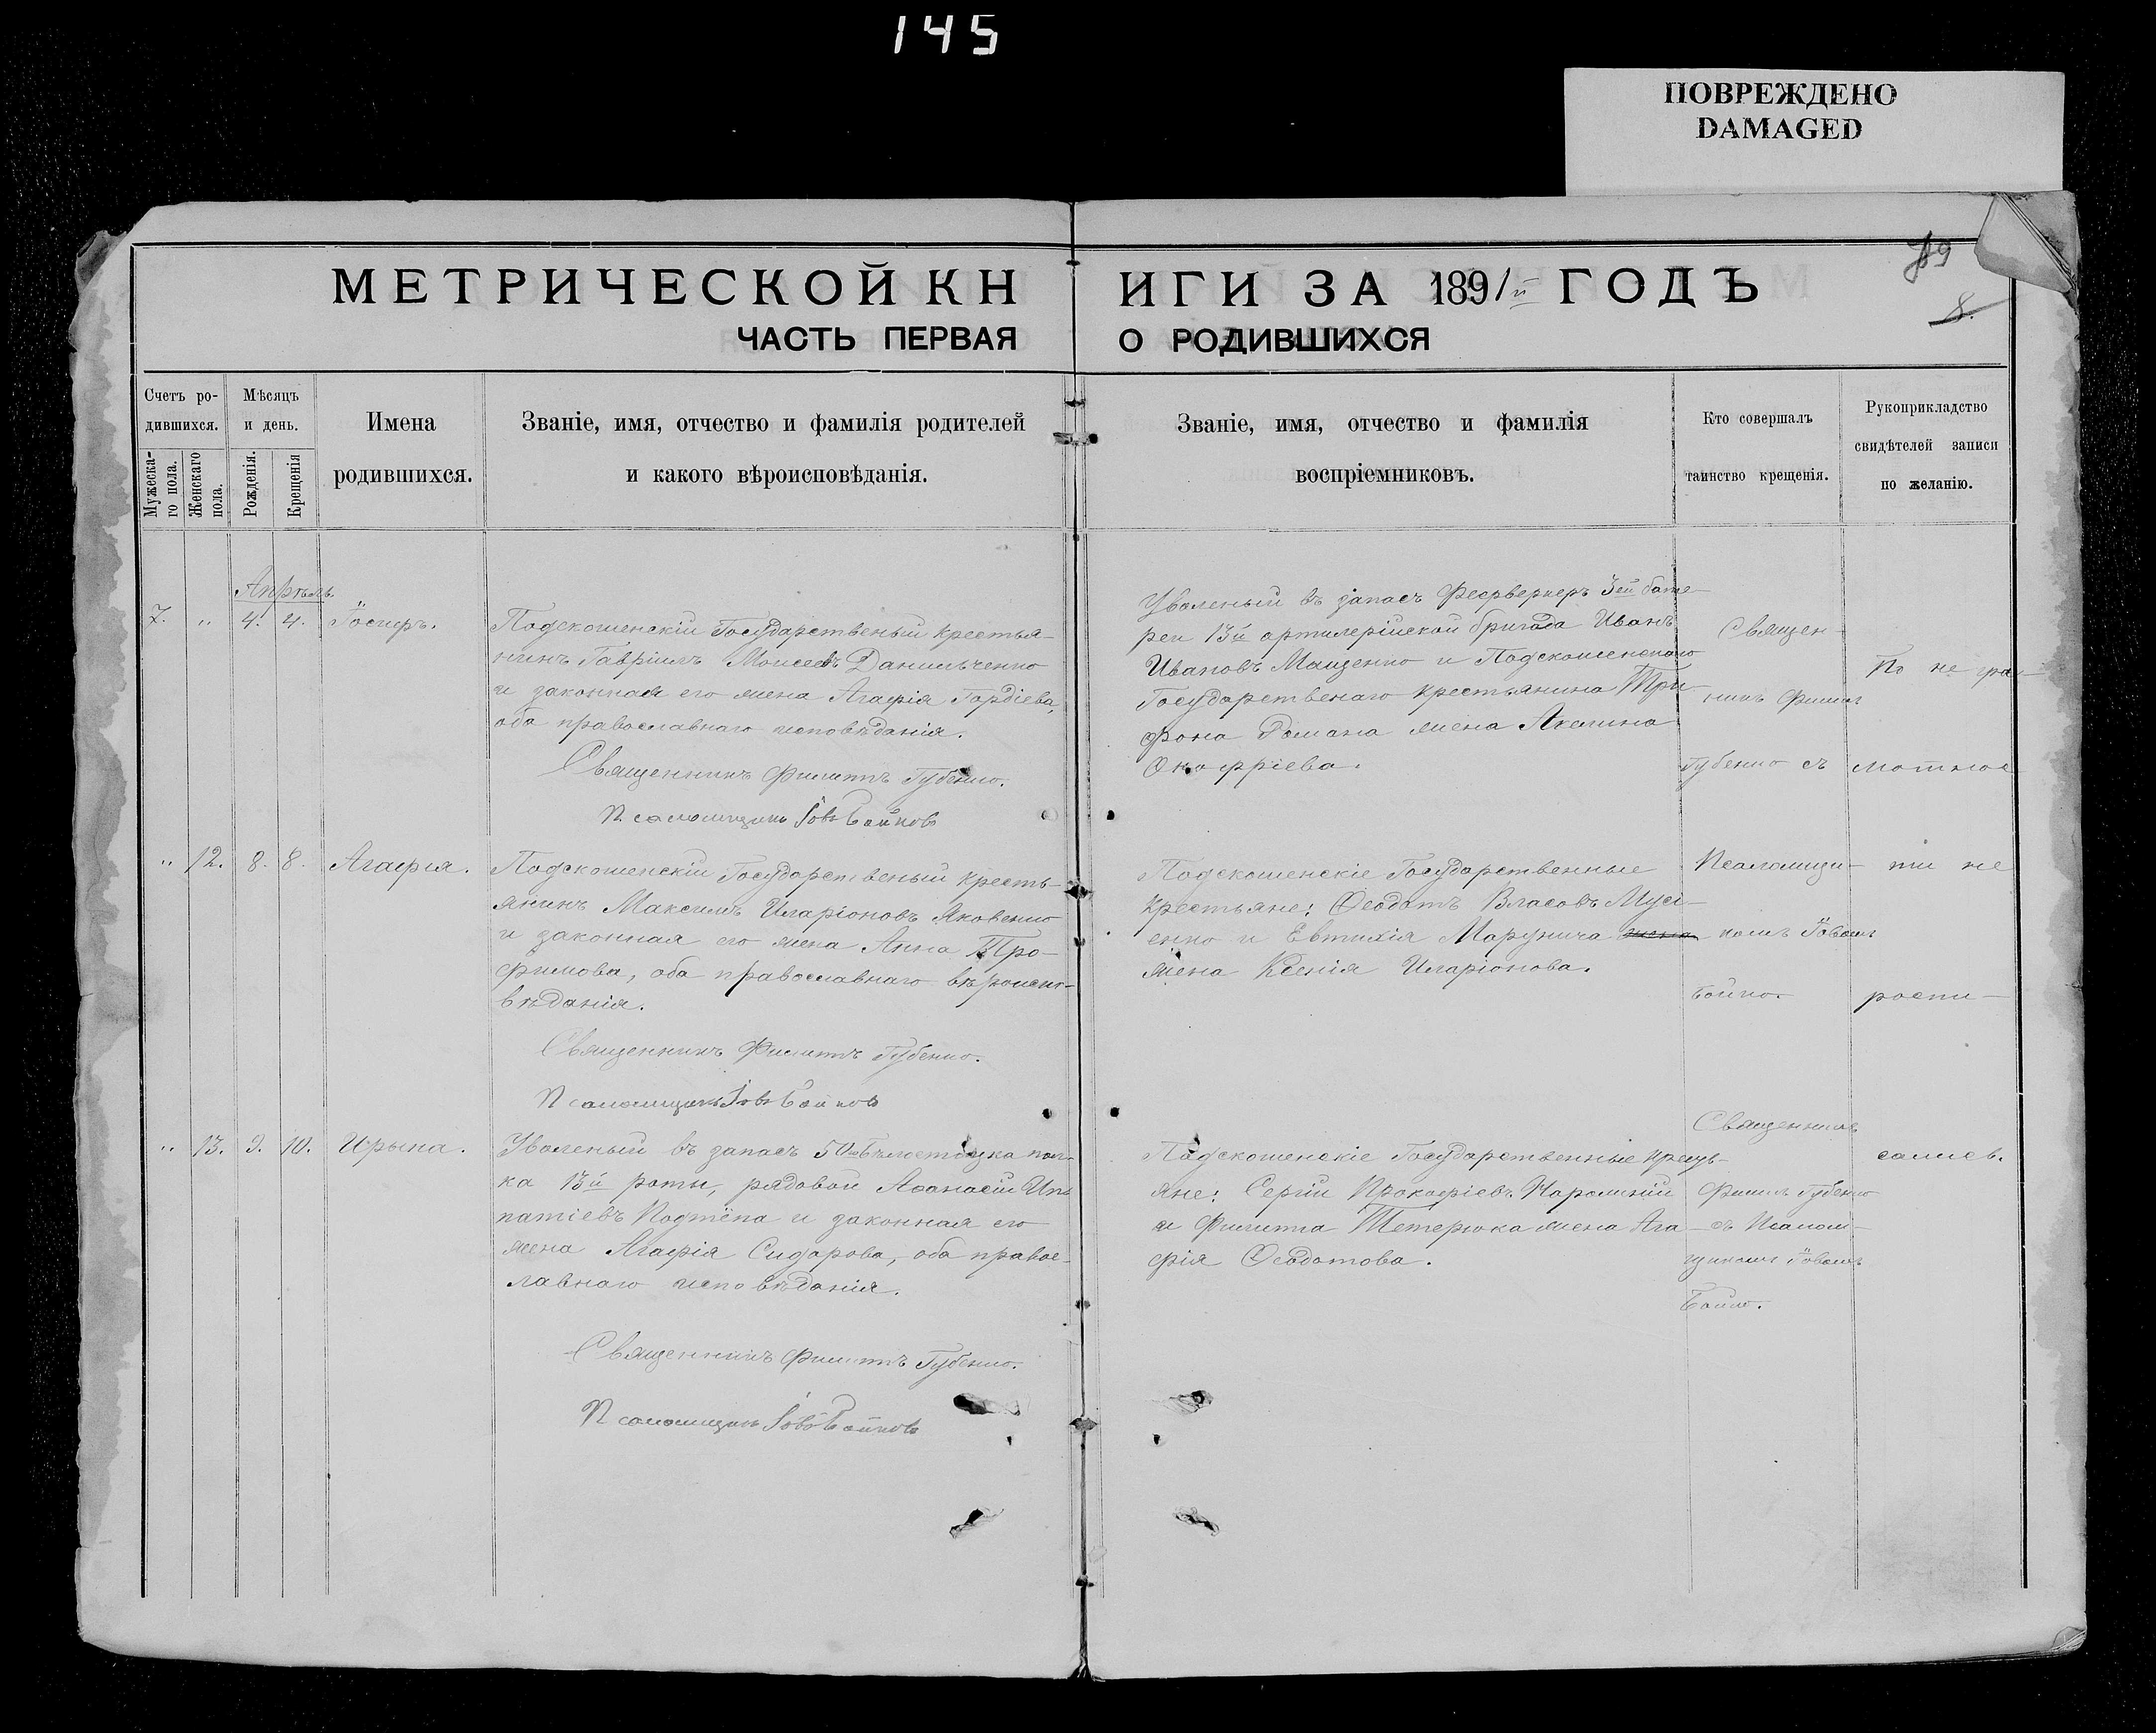 145
ПОВРЕЖДЕНО
DAMAGED
89
8.
МЕТРИЧЕСКОЙ КНИГИ ЗА 1891й ГОДЪ
ЧАСТЬ ПЕРВАЯ О РОДИВШИХСЯ
Счетъ ро-
дившихся.
Мужеска-
го пола.
Женскаго
пола.
Мѣсяцъ
и день.
Рожденія.
Крещенія
Имена
родившихся.
Званіе, имя, отчество и фамилія родителей
и какого вѣроисповѣданія.
Званіе, имя, отчество и фамилія
воспріемниковъ.
Кто совершалъ
таинство крещенія.
Рукоприкладство
свидѣтелей записи
по желанію.
Апрѣль
7. " 4. 4.
Подскошенскій Государственый крестья-
нинъ Гавріилъ Моисеевъ Данильченко
и законная его жена Агафія Гордіева,
оба православнаго исповѣданія.
Священникъ Филиппъ Губенко.
Псаломщикъ Іовъ Бойковъ
Уволеный въ запасъ Феерверкеръ 3ей бата-
реи 13й артилерійской бригада Иванъ
Ивановъ Маценко и Подскошенскаго
Государственаго крестьянина Три-
фона Романа жена Акилина
Онофріева.
Священ-
никъ Филип
Губенко съ
По не гра-
мотное
" 12. 8. 8. Агафія.
Подскошенскій Государственый кресть-
янинъ Максимъ Иларіоновъ Яковенко
и законная его жена Анна Тро-
фимова, оба православнаго вѣроиспо-
вѣданія.
Священникъ Филиппъ Губенко.
Псаломщикъ Іовъ Бойковъ
Подскошенскіе Государственные
Крестьяне: Феодотъ Власовъ Мусі-
енко и Евтихія Марунича
жена Ксенія Иларіонова.
Псаломщи-
комъ Іовомъ
Бойко.
сти не
роспи-
" 13. 9. 10. Ирына.
Уволеный въ запасъ 50го Бѣлостоцка пол-
ка 13й роты, рядовой Афанасій Ип-
патіевъ Подтёпа и законная его
жена Агафія Сидорова, оба правос-
лавнаго исповѣданія.
Священникъ Филиппъ Губенко.
Псаломщикъ Іовъ Бойковъ
Подскошенскіе Государственные крестъ-
яне: Сергій Прокофіевъ
и Филиппа Тетерюка жена Ага-
фія Феодотова.
Священникъ
Филип Губенко
съ Псалом-
щикомъ Іовомъ
Бойко.
сались.